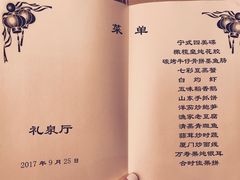 菜单
礼泉厅
2017年9月25日
宁式四美碟
橄榄皇炖花胶
碳烤牛仔骨拼墨鱼肠
七彩豆蒸蟹
白灼虾
五味稻香鹅
山东手抓饼
洋茄炒鲍笋
渔家老豆腐
清蒸青斑鱼
蒜茸炒时蔬
厦门炒面线
万寿果炖银耳
合时佳果拼